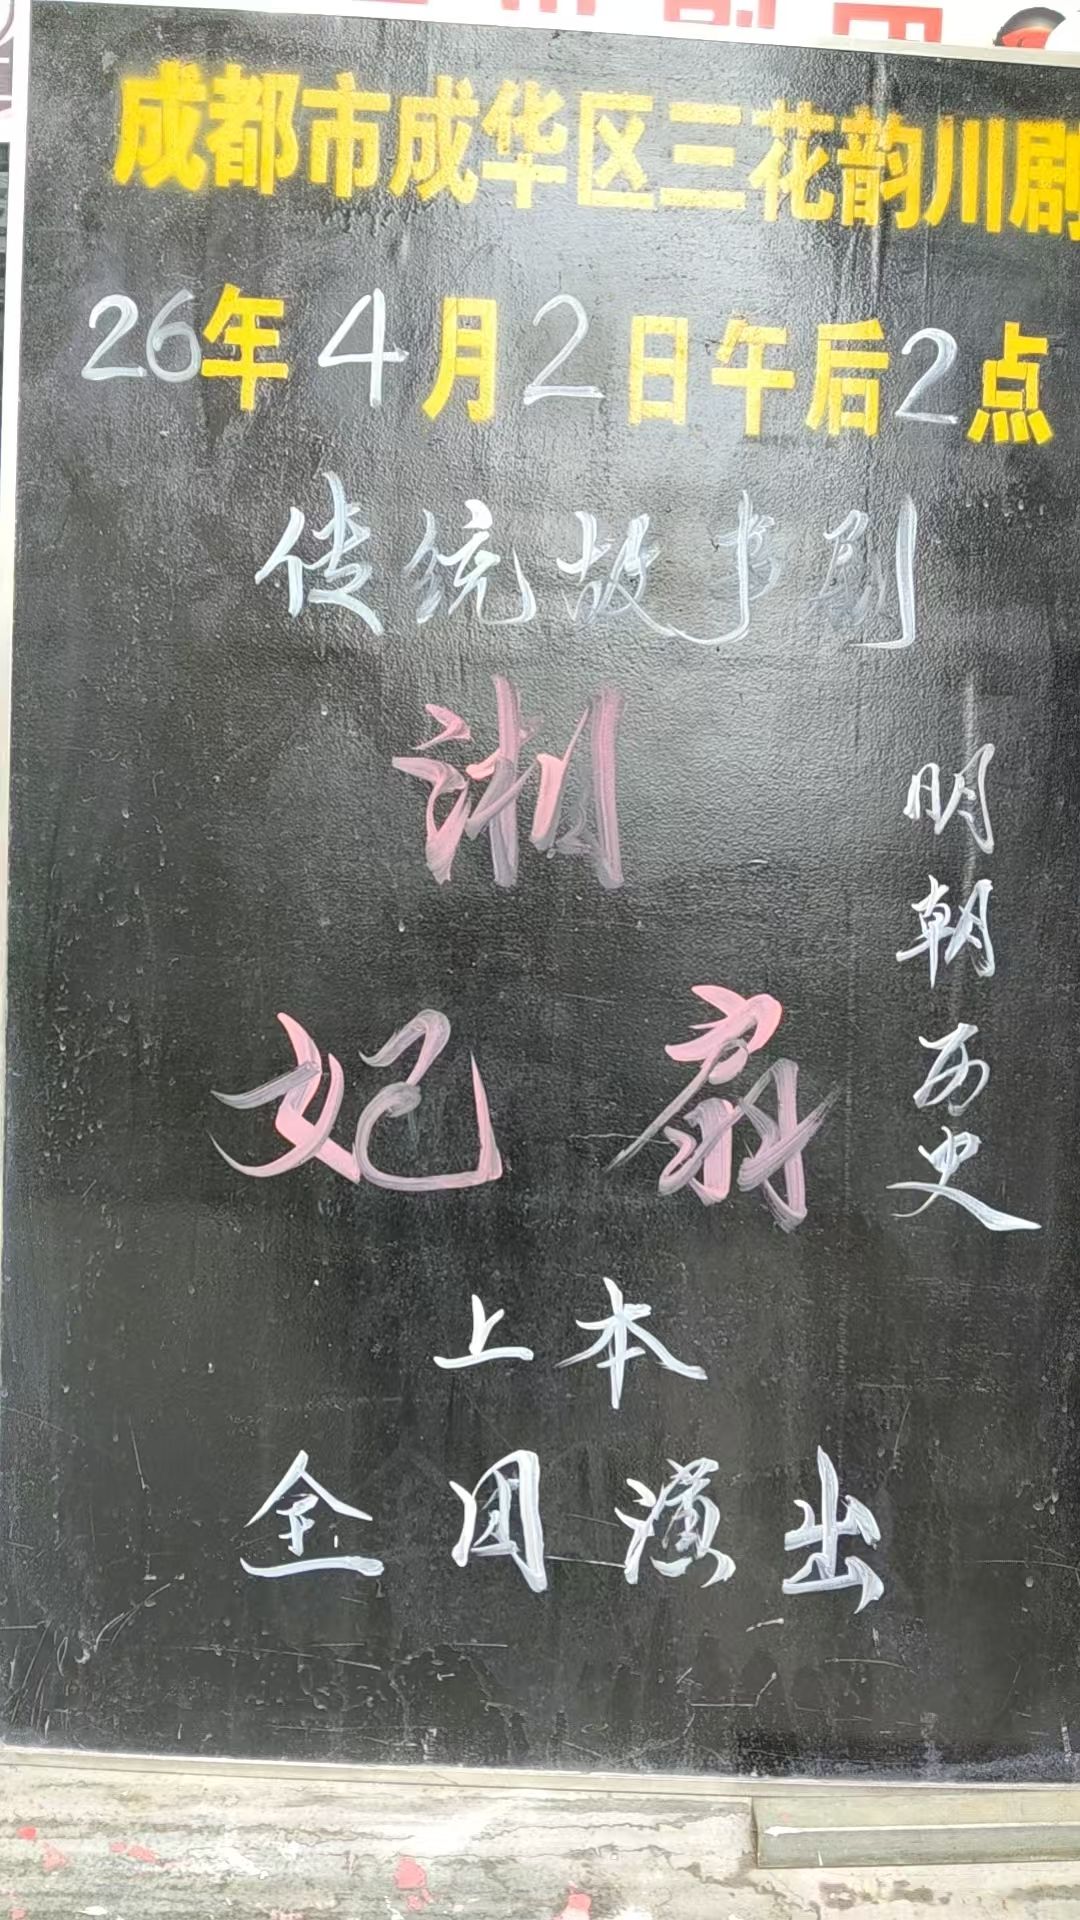 成都市成华区三花韵川剧
26年4月2日午后2点
传统故事剧
湘
妃扇
明朝历史
上本
全团演出